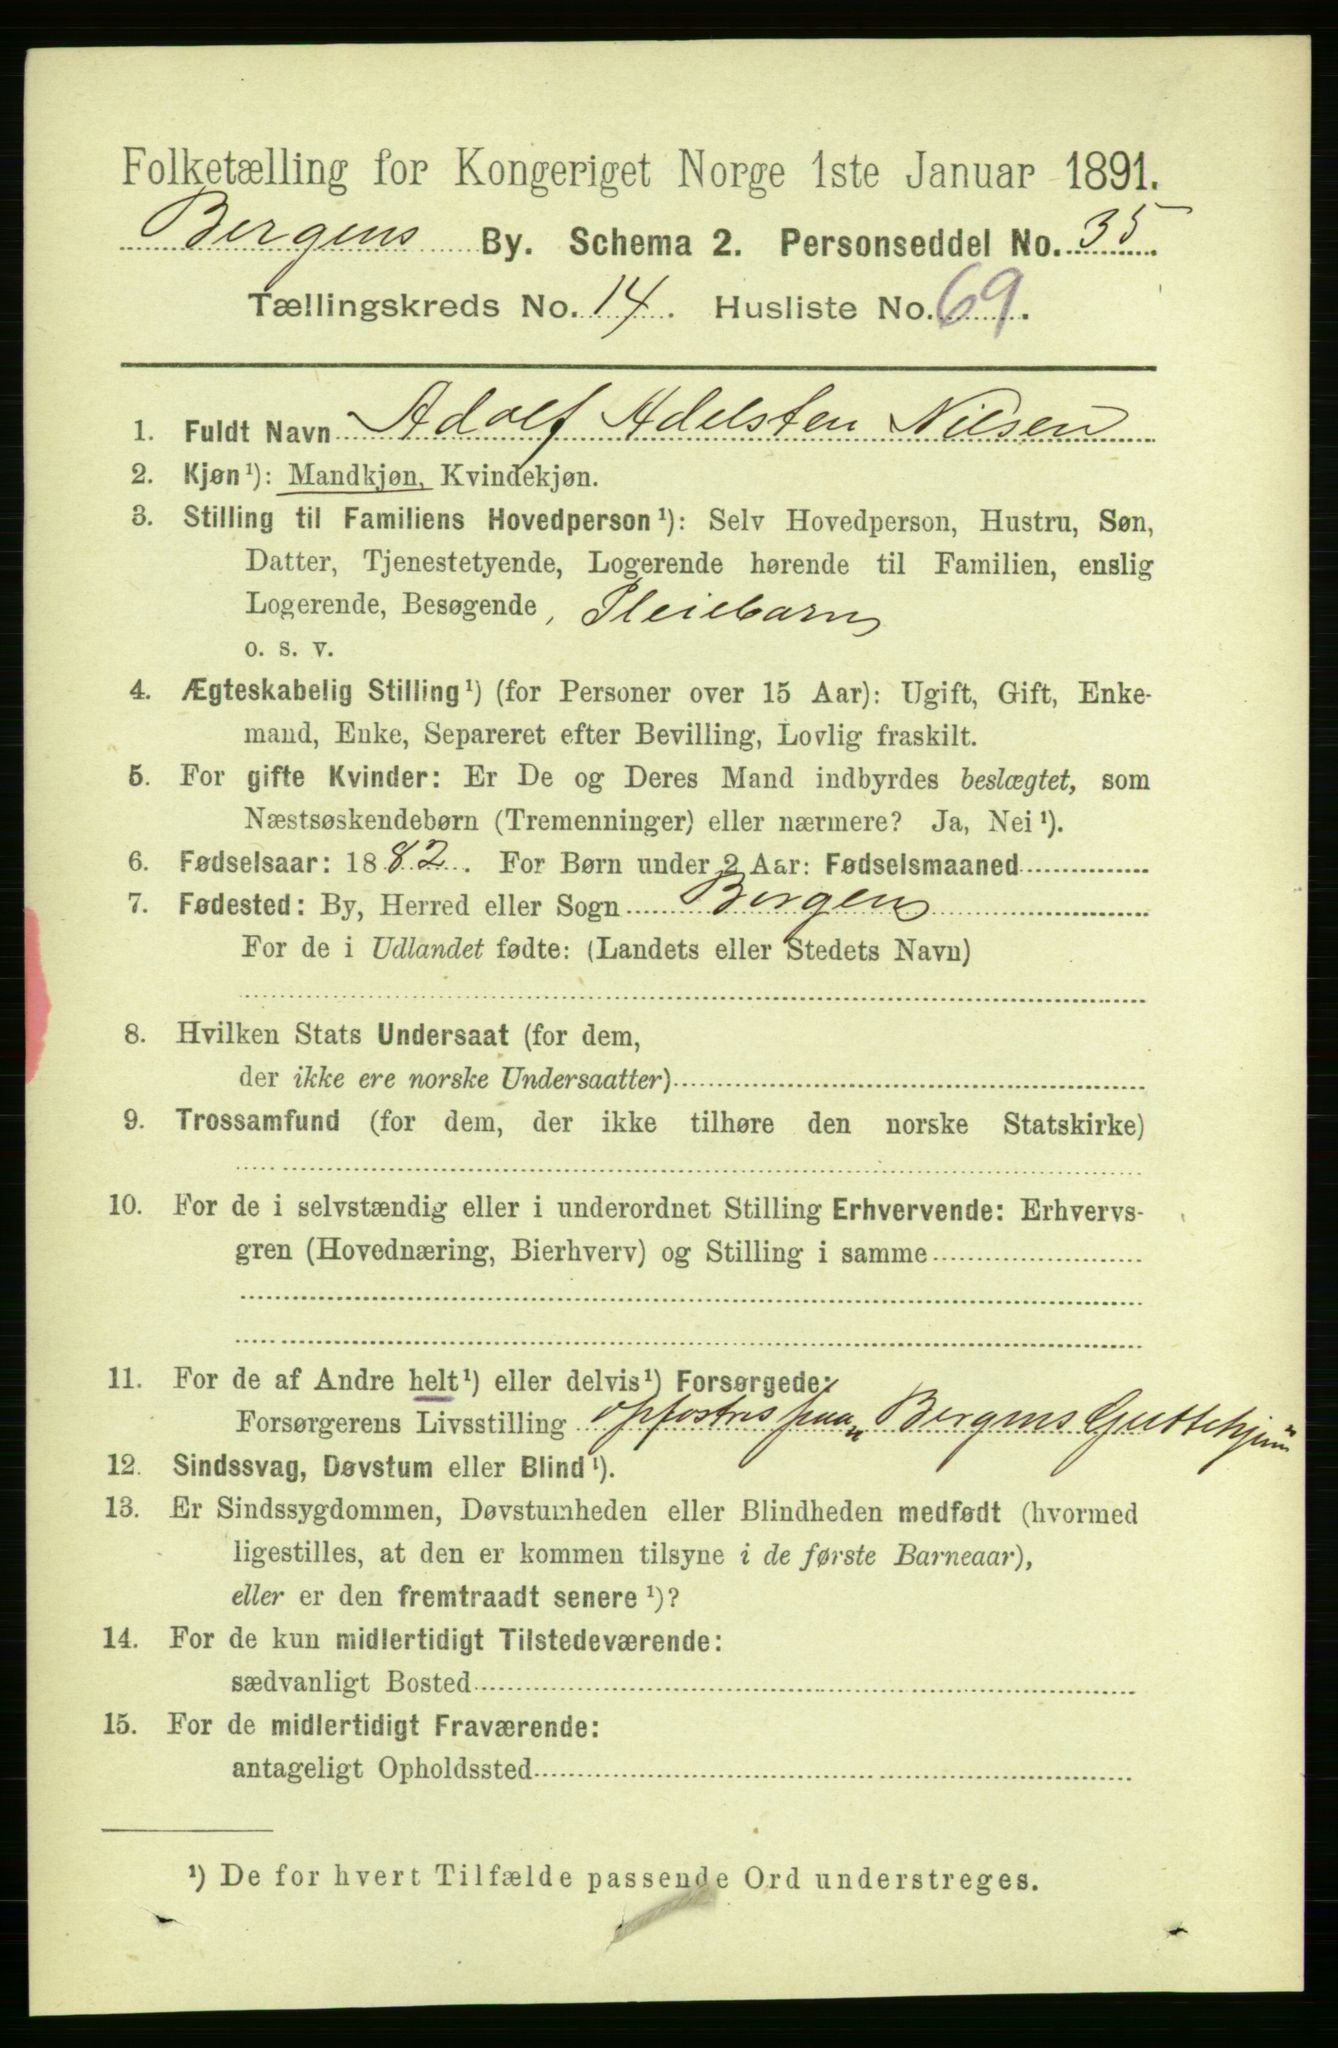 Folketælling for Kongeriget Norge 1ste Januar 1891.
Bergens By. Schema 2. Personseddel No. 35.
Tællingskreds No. 14. Husliste No. 69.
1. Fuldt Navn Adolf Adelsten Nilsen
2. Kjøn¹): Mandkjøn, Kvindekjøn.
3. Stilling til Familiens Hovedperson¹): Selv Hovedperson, Hustru, Søn,
Datter, Tjenestetyende, Logerende hørende til Familien, enslig
Logerende, Besøgende, Pleiebarn
o. s. v.
4. Ægteskabelig Stilling¹) (for Personer over 15 Aar): Ugift, Gift, Enke-
mand, Enke, Separeret efter Bevilling, Lovlig fraskilt.
5. For gifte Kvinder: Er De og Deres Mand indbyrdes beslægtet, som
Næstsøskendebørn (Tremenninger) eller nærmere? Ja, Nei¹).
6. Fødselsaar: 1882. For Børn under 2 Aar: Fødselsmaaned
7. Fødested: By, Herred eller Sogn Bergen
For de i Udlandet fødte: (Landets eller Stedets Navn)
8. Hvilken Stats Undersaat (for dem,
der ikke ere norske Undersaatter)
9. Trossamfund (for dem, der ikke tilhøre den norske Statskirke)
10. For de i selvstændig eller i underordnet Stilling Erhvervende: Erhvervs-
gren (Hovednæring, Bierhverv) og Stilling i samme
11. For de af Andre helt¹) eller delvis¹) Forsørgede:
Forsørgerens Livsstilling opfostres paa „Bergens Guttehjem"
12. Sindssvag, Døvstum eller Blind¹).
13. Er Sindssygdommen, Døvstumheden eller Blindheden medfødt (hvormed
ligestilles, at den er kommen tilsyne i de første Barneaar),
eller er den fremtraadt senere¹)?
14. For de kun midlertidigt Tilstedeværende:
sædvanligt Bosted
15. For de midlertidigt Fraværende:
antageligt Opholdssted
¹) De for hvert Tilfælde passende Ord understreges.